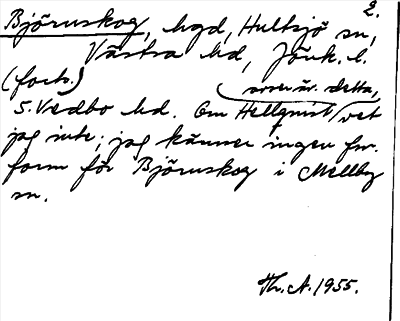 2.
Björnskog, hgd, Hultsjö sn,
Västra hd, Jönk. l.
(forts.) avser är detta,
S. Vedbo hd. Om Hellquist vet
jag inte; jag känner ingen fsv.
form för Björnskog i Mellby
sn.
Th. A. 1955.